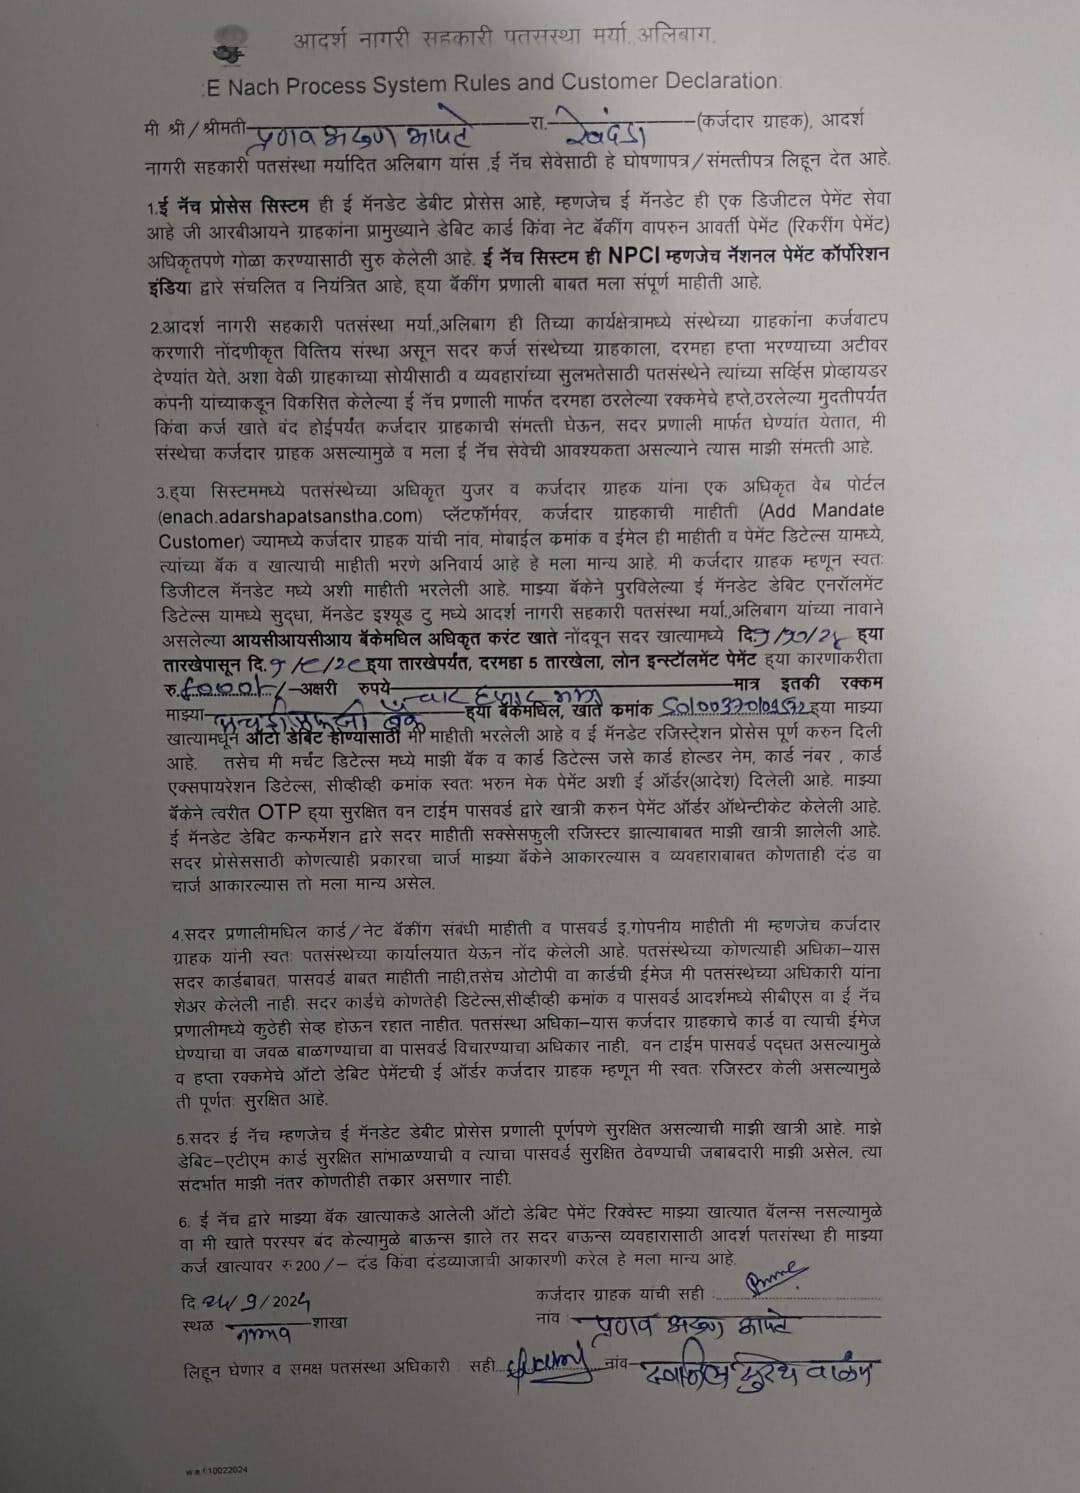 आदर्श नागरी सहकारी पतसंस्था मर्या. अलिबाग.
:E Nach Process System Rules and Customer Declaration:
मी श्री / श्रीमती प्रणव अरुण आपटे रा. रेवदंडा (कर्जदार ग्राहक), आदर्श
नागरी सहकारी पतसंस्था मर्यादित अलिबाग यांस ,ई नॅच सेवेसाठी हे घोषणापत्र / संमत्तीपत्र लिहून देत आहे.
1.ई नॅच प्रोसेस सिस्टम ही ई मॅनडेट डेबीट प्रोसेस आहे, म्हणजेच ई मॅनडेट ही एक डिजीटल पेमेंट सेवा
आहे जी आरबीआयने ग्राहकांना प्रामुख्याने डेबिट कार्ड किंवा नेट बॅकींग वापरुन आवर्ती पेमेंट (रिकरींग पेमेंट)
अधिकृतपणे गोळा करण्यासाठी सुरु केलेली आहे. ई नॅच सिस्टम ही NPCI म्हणजेच नॅशनल पेमेंट कॉर्पोरेशन
इंडिया द्वारे संचलित व नियंत्रित आहे, ह्या बॅकींग प्रणाली बाबत मला संपूर्ण माहीती आहे.
2.आदर्श नागरी सहकारी पतसंस्था मर्या.,अलिबाग ही तिच्या कार्यक्षेत्रामध्ये संस्थेच्या ग्राहकांना कर्जवाटप
करणारी नोंदणीकृत वित्तिय संस्था असून सदर कर्ज संस्थेच्या ग्राहकाला, दरमहा हप्ता भरण्याच्या अटीवर
देण्यांत येते. अशा वेळी ग्राहकाच्या सोयीसाठी व व्यवहारांच्या सुलभतेसाठी पतसंस्थेने त्यांच्या सर्व्हिस प्रोव्हायडर
कंपनी यांच्याकडून विकसित केलेल्या ई नॅच प्रणाली मार्फत दरमहा ठरलेल्या रक्कमेचे हप्ते,ठरलेल्या मुदतीपर्यंत
किंवा कर्ज खाते बंद होईपर्यंत कर्जदार ग्राहकाची संमत्ती घेऊन, सदर प्रणाली मार्फत घेण्यांत येतात, मी
संस्थेचा कर्जदार ग्राहक असल्यामुळे व मला ई नॅच सेवेची आवश्यकता असल्याने त्यास माझी संमत्ती आहे.
3.ह्या सिस्टममध्ये पतसंस्थेच्या अधिकृत युजर व कर्जदार ग्राहक यांना एक अधिकृत वेब पोर्टल
(enach.adarshapatsanstha.com) प्लॅटफॉर्मवर, कर्जदार ग्राहकाची माहीती (Add Mandate
Customer) ज्यामध्ये कर्जदार ग्राहक यांची नांव, मोबाईल क्रमांक व ईमेल ही माहीती व पेमेंट डिटेल्स यामध्ये,
त्यांच्या बॅक व खात्याची माहीती भरणे अनिवार्य आहे हे मला मान्य आहे. मी कर्जदार ग्राहक म्हणून स्वतः
डिजीटल मॅनडेट मध्ये अशी माहीती भरलेली आहे. माझ्या बॅकेने पुरविलेल्या ई मॅनडेट डेबिट एनरॉलमेंट
डिटेल्स यामध्ये सुद्धा, मॅनडेट इश्यूड टु मध्ये आदर्श नागरी सहकारी पतसंस्था मर्या.,अलिबाग यांच्या नावाने
असलेल्या आयसीआयसीआय बॅकेमधिल अधिकृत करंट खाते नोंदवून सदर खात्यामध्ये दि. ह्या
तारखेपासून दि. ह्या तारखेपर्यंत, दरमहा 5 तारखेला, लोन इन्स्टॉलमेंट पेमेंट ह्या कारणाकरीता
रु. अक्षरी रुपये चार हजार मात्र मात्र इतकी रक्कम
माझ्या एचडीएफसी बँक ह्या बॅकेमधिल, खाते क्रमांक ह्या माझ्या
खात्यामधून ऑटो डेबिट होण्यासाठी मी माहीती भरलेली आहे व ई मॅनडेट रजिस्ट्रेशन प्रोसेस पूर्ण करुन दिली
आहे. तसेच मी मर्चंट डिटेल्स मध्ये माझी बॅक व कार्ड डिटेल्स जसे कार्ड होल्डर नेम, कार्ड नंबर , कार्ड
एक्सपायरेशन डिटेल्स, सीव्हीव्ही क्रमांक स्वतः भरुन मेक पेमेंट अशी ई ऑर्डर(आदेश) दिलेली आहे. माझ्या
बॅकेने त्वरीत OTP ह्या सुरक्षित वन टाईम पासवर्ड द्वारे खात्री करुन पेमेंट ऑर्डर ऑथेन्टीकेट केलेली आहे.
ई मॅनडेट डेबिट कन्फर्मेशन द्वारे सदर माहीती सक्सेसफुली रजिस्टर झाल्याबाबत माझी खात्री झालेली आहे.
सदर प्रोसेससाठी कोणत्याही प्रकारचा चार्ज माझ्या बॅकेने आकारल्यास व व्यवहाराबाबत कोणताही दंड वा
चार्ज आकारल्यास तो मला मान्य असेल.
4.सदर प्रणालीमधिल कार्ड / नेट बॅकींग संबंधी माहीती व पासवर्ड इ.गोपनीय माहीती मी म्हणजेच कर्जदार
ग्राहक यांनी स्वतः पतसंस्थेच्या कार्यालयात येऊन नोंद केलेली आहे. पतसंस्थेच्या कोणत्याही अधिका-यास
सदर कार्डबाबत, पासवर्ड बाबत माहीती नाही,तसेच ओटोपी वा कार्डची ईमेज मी पतसंस्थेच्या अधिकारी यांना
शेअर केलेली नाही. सदर कार्डचे कोणतेही डिटेल्स,सीव्हीव्ही क्रमांक व पासवर्ड आदर्शमध्ये सीबीएस वा ई नॅच
प्रणालीमध्ये कुठेही सेव्ह होऊन रहात नाहीत. पतसंस्था अधिका-यास कर्जदार ग्राहकाचे कार्ड वा त्याची ईमेज
घेण्याचा वा जवळ बाळगण्याचा वा पासवर्ड विचारण्याचा अधिकार नाही. वन टाईम पासवर्ड पद्धत असल्यामुळे
व हप्ता रक्कमेचे ऑटो डेबिट पेमेंटची ई ऑर्डर कर्जदार ग्राहक म्हणून मी स्वतः रजिस्टर केली असल्यामुळे
ती पूर्णतः सुरक्षित आहे.
5.सदर ई नॅच म्हणजेच ई मॅनडेट डेबीट प्रोसेस प्रणाली पूर्णपणे सुरक्षित असल्याची माझी खात्री आहे. माझे
डेबिट-एटीएम कार्ड सुरक्षित सांभाळण्याची व त्याचा पासवर्ड सुरक्षित ठेवण्याची जबाबदारी माझी असेल. त्या
संदर्भात माझी नंतर कोणतीही तक्रार असणार नाही.
6. ई नॅच द्वारे माझ्या बॅक खात्याकडे आलेली ऑटो डेबिट पेमेंट रिक्वेस्ट माझ्या खात्यात बॅलन्स नसल्यामुळे
वा मी खाते परस्पर बंद केल्यामुळे बाऊन्स झाले तर सदर बाऊन्स व्यवहारासाठी आदर्श पतसंस्था ही माझ्या
कर्ज खात्यावर रु 200 /- दंड किंवा दंडव्याजाची आकारणी करेल हे मला मान्य आहे.
कर्जदार ग्राहक यांची सही :
दि. 24/9/2024
नांव :- प्रणव अरुण आपटे
स्थळ : शाखा
लिहून घेणार व समक्ष पतसंस्था अधिकारी : सही नांव
w.e.f.10022024